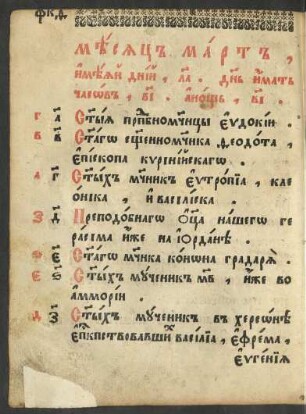 фк҃д
МѢ́СѦЦЪ МА́РТЪ ,
и҆мѣ́ѧй дні́й , л҃а . дн҃ь и҆́мать
часѡ́въ , в҃і . А҆ но́щь , в҃і .
г а҃ Ст҃ы́ѧ прпⷣбномч҃ницы є҆ѵдокі́и .
в в҃ Ст҃а́гѡ сщ҃енномч҃ника ѳеодо́та ,
є҆пі́скопа кѵрині́йскагѡ .
г҃ Ст҃ы́хъ мч҃никъ є҆ѵтро́пїа , клео
ни́ка , и҆ васїлі́ска .
з д҃ Преподо́бнагѡ ѻ҆ц҃а̀ на́шегѡ ге
ра́сима и҆́же на і҆ѻрда́нѣ .
є҃ Ст҃а́гѡ мч҃ника ко́нѡна градарѧ̀ .
ѕ҃ Ст҃ы́хъ мч҃еникъ м҃в , и҆́же во
а҆ммо́рїи .
д з҃ Ст҃ы́хъ мч҃еникъ въ херсѡ́нѣ
є҆пⷭ҇кпствовавшихъ васі́лїа , є҆фре́ма ,
є҆ѵге́нїа